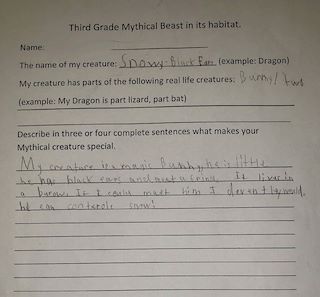 Third Grade Mythical Beast in its habitat.
Name:
The name of my creature: Snowy Black Ears (example: Dragon)
My creature has parts of the following real life creatures: Bunny/
(example: My Dragon is part lizard, part bat)
Describe in three or four complete sentences what makes your
Mythical creature special.
My creature is a magic Bunny, he is little
he has black ears and a It lives in
a burow. If I could meet him I would.
he can controle snow!